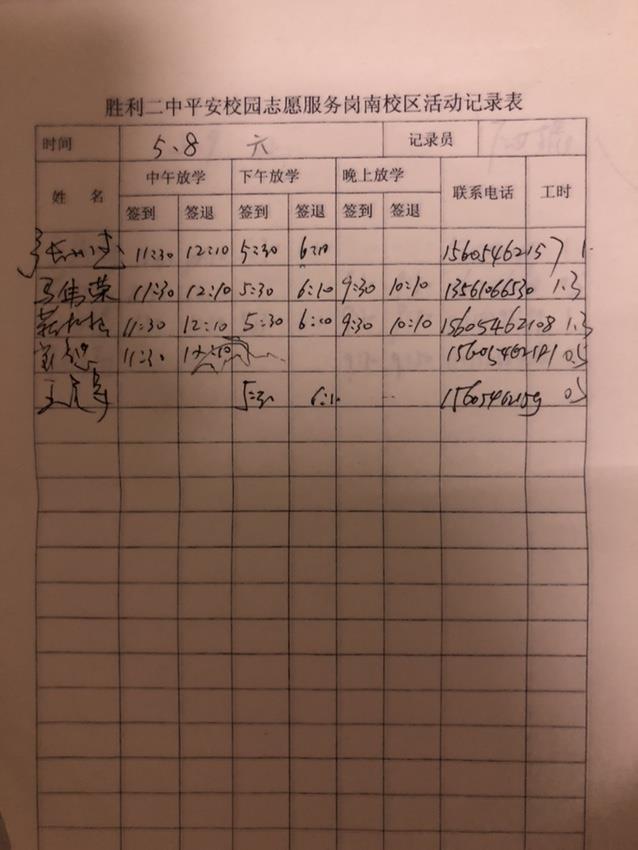 胜利二中平安校园志愿服务岗南校区活动记录表
时间 5.8 六 记录员
姓 名 中午放学 下午放学 晚上放学 联系电话 工时
签到 签退 签到 签退 签到 签退
11:30 12:10 5:30 6:10 15605462157 1.
马伟荣 11:30 12:10 5:30 6:10 9:30 10:10 13561066530 1.3
11:30 12:10 5:30 6:10 9:30 10:10 15605462108 1.3
11:30 0.5
5:30 0.5